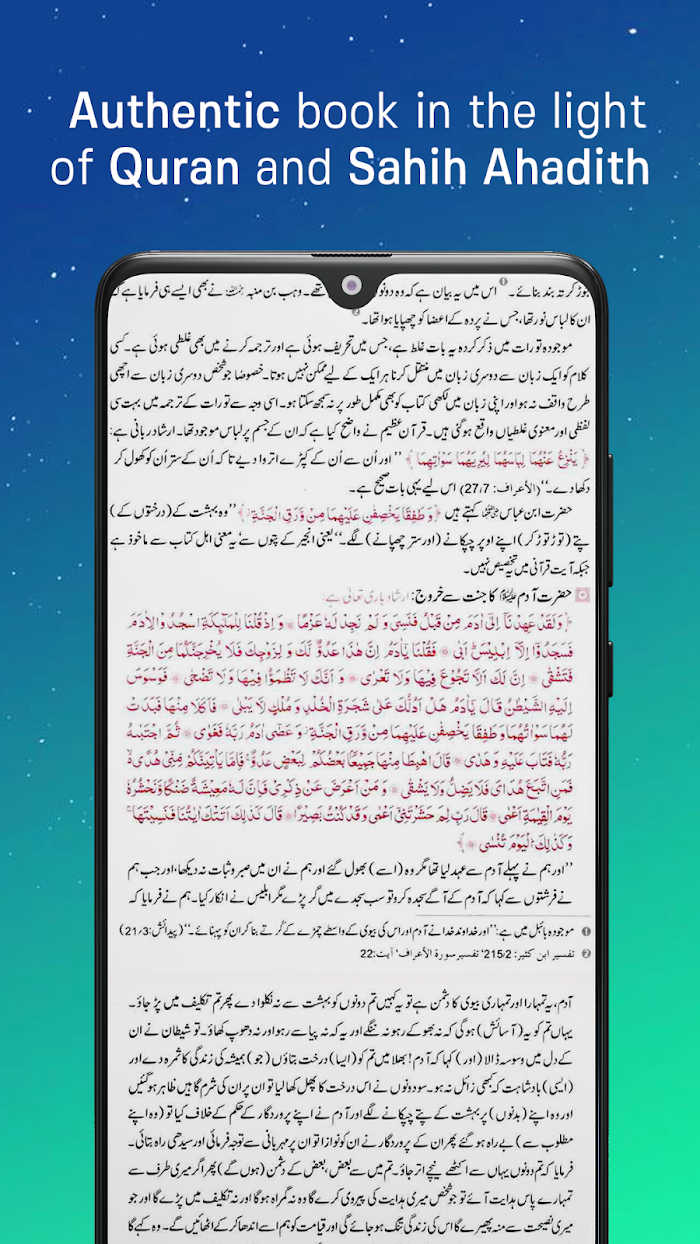 Authentic book in the light
of Quran and Sahih Ahadith
جوڑ کر تہ بند بنائے۔ ❶ اس میں یہ بیان ہے کہ وہ دونوں تھے۔ وہب بن منبہ نے بھی ایسے ہی فرمایا ہے کہ
ان کا لباس نور تھا، جس نے پردہ کے اعضا کو چھپایا ہوا تھا۔ ❷
موجودہ تورات میں ذکر کردہ یہ بات غلط ہے، جس میں تحریف ہوئی ہے اور ترجمہ کرنے میں بھی غلطی ہوئی ہے۔ کسی
کلام کو ایک زبان سے دوسری زبان میں منتقل کرنا ہر ایک کے لیے ممکن نہیں ہوتا۔ خصوصا جو شخص دوسری زبان سے اچھی
طرح واقف نہ ہو اور اپنی زبان میں لکھی کتاب کو بھی مکمل طور پر نہ سمجھ سکتا ہو۔ اسی وجہ سے تورات کے ترجمہ میں بہت سی
لفظی اور معنوی غلطیاں واقع ہوگئی ہیں۔ قرآن عظیم نے واضح کیا ہے کہ ان کے جسم پر لباس موجود تھا۔ ارشاد ربانی ہے:
﴿ يَنْزِعُ عَنْهُمَا لِبَاسَهُمَا لِيُرِيَهُمَا سَوْاٰتِهِمَا ﴾ ’’اور اُن سے اُن کے کپڑے اتروا دیے تاکہ اُن کے ستر اُن کو کھول کر
دکھا دے۔‘‘ (الأعراف: 27/7) اس لیے یہی بات صحیح ہے۔
حضرت ابن عباس کہتے ہیں ﴿ وَ طَفِقَا يَخْصِفٰنِ عَلَيْهِمَا مِنْ وَّرَقِ الْجَنَّةِ ﴾ ’’وہ بہشت کے (درختوں کے)
پتے (توڑ توڑ کر) اپنے اوپر چپکانے (اور ستر چھپانے) لگے۔‘‘ یعنی انجیر کے پتوں سے‘ یہ معنی اہل کتاب سے ماخوذ ہے
جبکہ آیت قرآنی میں تخصیص نہیں۔
حضرت آدم علیہ السلام کا جنت سے خروج: ارشاد باری تعالیٰ ہے:
﴿ وَ لَقَدْ عَهِدْنَاۤ اِلٰۤى اٰدَمَ مِنْ قَبْلُ فَنَسِيَ وَ لَمْ نَجِدْ لَهٗ عَزْمًا ۞ وَ اِذْ قُلْنَا لِلْمَلٰٓئِكَةِ اسْجُدُوْا لِاٰدَمَ
فَسَجَدُوْۤا اِلَّاۤ اِبْلِيْسَ اَبٰى ۞ فَقُلْنَا يٰۤاٰدَمُ اِنَّ هٰذَا عَدُوٌّ لَّكَ وَ لِزَوْجِكَ فَلَا يُخْرِجَنَّكُمَا مِنَ الْجَنَّةِ
فَتَشْقٰى ۞ اِنَّ لَكَ اَلَّا تَجُوْعَ فِيْهَا وَ لَا تَعْرٰى ۞ وَ اَنَّكَ لَا تَظْمَؤُا فِيْهَا وَ لَا تَضْحٰى ۞ فَوَسْوَسَ
اِلَيْهِ الشَّيْطٰنُ قَالَ يٰۤاٰدَمُ هَلْ اَدُلُّكَ عَلٰى شَجَرَةِ الْخُلْدِ وَ مُلْكٍ لَّا يَبْلٰى ۞ فَاَكَلَا مِنْهَا فَبَدَتْ
لَهُمَا سَوْاٰتُهُمَا وَ طَفِقَا يَخْصِفٰنِ عَلَيْهِمَا مِنْ وَّرَقِ الْجَنَّةِ وَ عَصٰۤى اٰدَمُ رَبَّهٗ فَغَوٰى ۞ ثُمَّ اجْتَبٰهُ
رَبُّهٗ فَتَابَ عَلَيْهِ وَ هَدٰى ۞ قَالَ اهْبِطَا مِنْهَا جَمِيْعًۢا بَعْضُكُمْ لِبَعْضٍ عَدُوٌّ فَاِمَّا يَاْتِيَنَّكُمْ مِّنِّيْ هُدًى
فَمَنِ اتَّبَعَ هُدَايَ فَلَا يَضِلُّ وَ لَا يَشْقٰى ۞ وَ مَنْ اَعْرَضَ عَنْ ذِكْرِيْ فَاِنَّ لَهٗ مَعِيْشَةً ضَنْكًا وَّ نَحْشُرُهٗ
يَوْمَ الْقِيٰمَةِ اَعْمٰى ۞ قَالَ رَبِّ لِمَ حَشَرْتَنِيْۤ اَعْمٰى وَ قَدْ كُنْتُ بَصِيْرًا ۞ قَالَ كَذٰلِكَ اَتَتْكَ اٰيٰتُنَا فَنَسِيْتَهَا
وَ كَذٰلِكَ الْيَوْمَ تُنْسٰى ۞ ﴾
’’اور ہم نے پہلے آدم سے عہد لیا تھا مگر وہ (اسے) بھول گئے اور ہم نے ان میں صبر و ثبات نہ دیکھا، اور جب ہم
نے فرشتوں سے کہا کہ آدم کے آگے سجدہ کرو تو سب سجدے میں گر پڑے مگر ابلیس نے انکار کیا۔ ہم نے فرمایا کہ
❶ موجودہ بائبل میں ہے: ’’اور خداوند خدا نے آدم اور اس کی بیوی کے واسطے چمڑے کے کُرتے بنا کر ان کو پہنائے۔‘‘ (پیدائش: 21/3)
❷ تفسیر ابن کثیر: 215/2‘ تفسیر سورۃ الأعراف‘ آیت: 22
آدم، یہ تمہارا اور تمہاری بیوی کا دشمن ہے تو یہ کہیں تم دونوں کو بہشت سے نہ نکلوا دے پھر تم تکلیف میں پڑ جاؤ۔
یہاں تم کو یہ (آسائش) ہوگی کہ نہ بھوکے رہو نہ ننگے اور یہ کہ نہ پیاسے رہو اور نہ دھوپ کھاؤ۔ تو شیطان نے ان
کے دل میں وسوسہ ڈالا (اور) کہا کہ آدم! بھلا میں تم کو (ایسا) درخت بتاؤں (جو) ہمیشہ کی زندگی کا ثمرہ دے اور
(ایسی) بادشاہت کہ کبھی زائل نہ ہو۔ سو دونوں نے اس درخت کا پھل کھا لیا تو ان پر ان کی شرم گاہیں ظاہر ہوگئیں
اور وہ اپنے (بدنوں) پر بہشت کے پتے چپکانے لگے اور آدم نے اپنے پروردگار کے حکم کے خلاف کیا تو (وہ اپنے
مطلوب سے) بے راہ ہو گئے پھر ان کے پروردگار نے ان کو نوازا تو ان پر مہربانی سے توجہ فرمائی اور سیدھی راہ بتائی۔
فرمایا کہ تم دونوں یہاں سے اکٹھے نیچے اتر جاؤ۔ تم میں سے بعض، بعض کے دشمن (ہوں گے) پھر اگر میری طرف سے
تمہارے پاس ہدایت آئے تو جو شخص میری ہدایت کی پیروی کرے گا وہ نہ گمراہ ہوگا اور نہ تکلیف میں پڑے گا اور جو
میری نصیحت سے منہ پھیرے گا اس کی زندگی تنگ ہو جائے گی اور قیامت کو ہم اسے اندھا کر کے اٹھائیں گے۔ وہ کہے گا